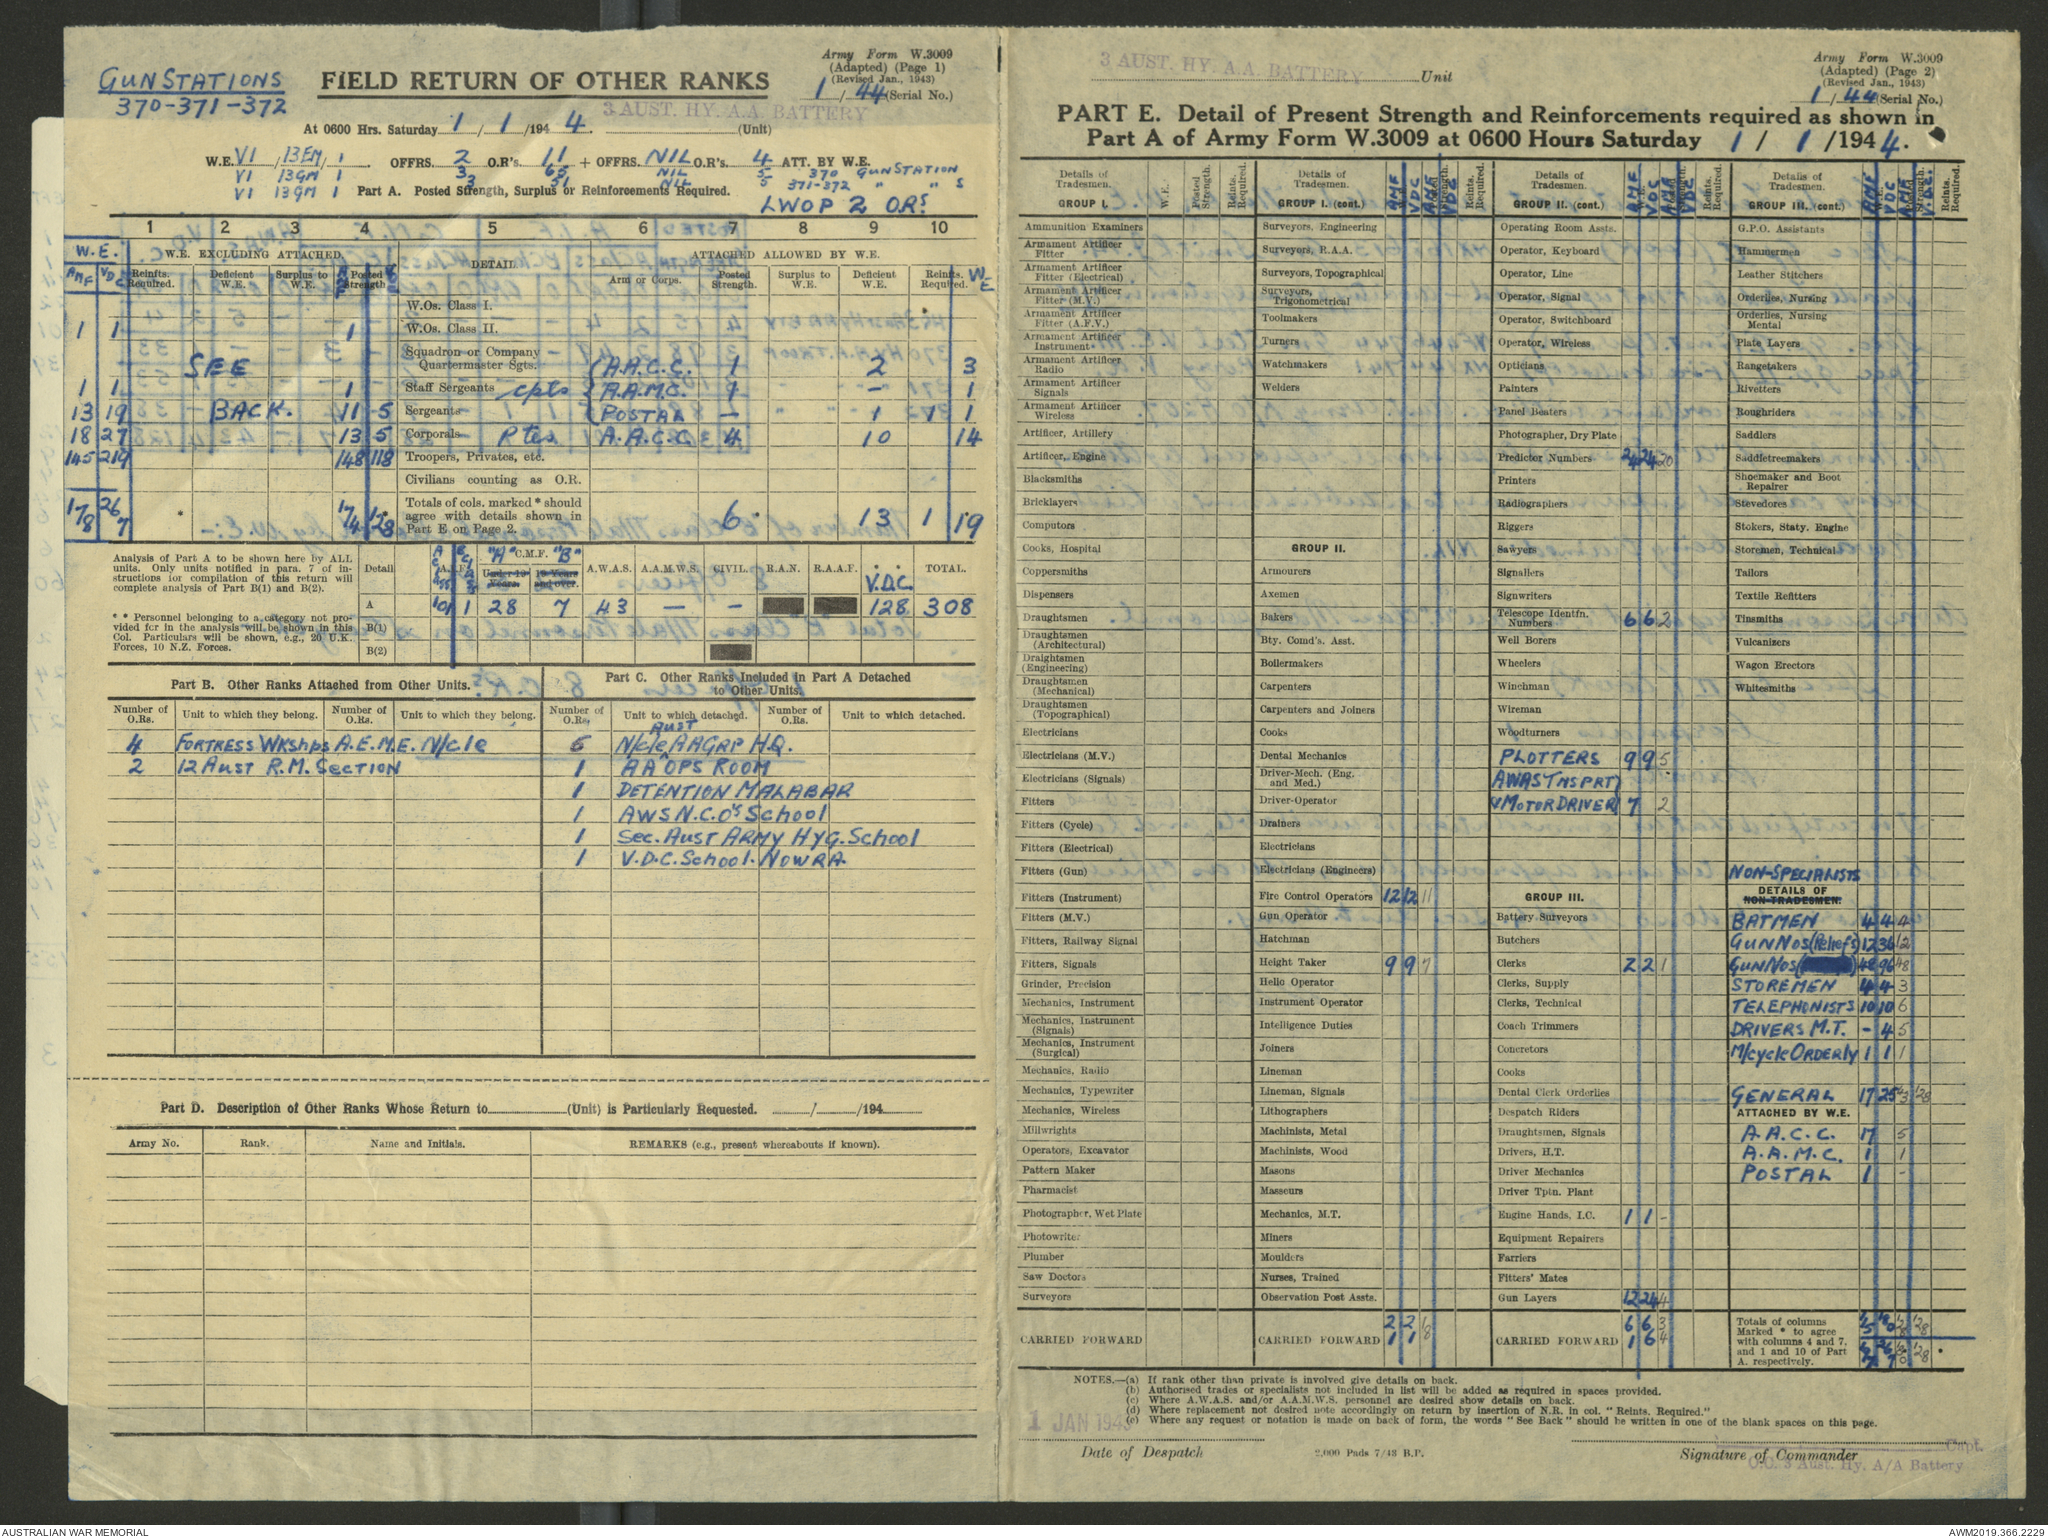 GUNSTATIONS
370-371-372
FIELD RETURN OF OTHER RANKS
Army Form W.3009
(Adapted) (Page 1)
(Revised Jan., 1943)
1/44 (Serial No.)
3 AUST. HY. A.A. BATTERY
At 0600 Hrs. Saturday 1/1/1944. (Unit)
W.E. VI /13EM/ 1. OFFRS. 2 O.R's. 11 + OFFRS. NIL O.R's. 4 ATT. BY W.E.
VI 13GM 1 3 65 NIL 5 370 GUNSTATION
VI 13GM 1 3 51 NIL 5 371-372 " " S
Part A. Posted Strength, Surplus or Reinforcements Required.
LWOP 2 ORs
1 2 3 4 5 6 7 8 9 10
W.E. W.E. EXCLUDING ATTACHED. DETAIL ATTACHED ALLOWED BY W.E.
AMF VDC Reinfts. Required. Deficient W.E. Surplus to W.E. Posted Strength Arm or Corps. Posted Strength. Surplus to W.E. Deficient W.E. Reinfts. Required. W.E
W.Os. Class I.
1 1 1 W.Os. Class II.
SEE Squadron or Company Quartermaster Sgts. A.A.C.C. 1 2 3
1 1 1 Staff Sergeants cpts A.A.M.C. 1 – 1
13 19 BACK. 11 5 Sergeants POSTAL – 1 1 1
18 27 13 5 Corporals Ptes A.A.C.C 4 10 14
145 219 148 118 Troopers, Privates, etc.
Civilians counting as O.R.
178 267 * 174 128 Totals of cols. marked * should agree with details shown in Part E on Page 2. 6 13 1 19
Analysis of Part A to be shown here by ALL units. Only units notified in para. 7 of instructions for compilation of this return will complete analysis of Part B(1) and B(2).
* * Personnel belonging to a category not provided for in the analysis will be shown in this Col. Particulars will be shown, e.g., 20 U.K. Forces, 10 N.Z. Forces.
Detail A.I.F. "A" C.M.F. "B" A.W.A.S. A.A.M.W.S. CIVIL. R.A.N. R.A.A.F. V.D.C. TOTAL.
Under 19 Years. 19 Years and over.
A 101 1 28 7 43 — – 128 308
B(1)
B(2)
Part B. Other Ranks Attached from Other Units.
Part C. Other Ranks Included in Part A Detached to Other Units.
Number of O.Rs. Unit to which they belong. Number of O.Rs. Unit to which they belong. Number of O.Rs. Unit to which detached. Number of O.Rs. Unit to which detached.
4 FORTRESS WKshps A.E.M.E. N/cle 6 N/cle AUST AAGRP H.Q.
2 12 AUST R.M. SECTION 1 AA OPS ROOM
1 DETENTION MALABAR
1 AWS N.C.O's School
1 Sec. AUST ARMY HYG. School
1 V.D.C. School. NOWRA
Part D. Description of Other Ranks Whose Return to (Unit) is Particularly Requested. / /194
Army No. Rank. Name and Initials. REMARKS (e.g., present whereabouts if known).
3 AUST. HY. A.A. BATTERY Unit
Army Form W.3009
(Adapted) (Page 2)
(Revised Jan., 1943)
1/44 (Serial No.)
PART E. Detail of Present Strength and Reinforcements required as shown in
Part A of Army Form W.3009 at 0600 Hours Saturday 1/1/1944.
Details of Tradesmen. W.E. Posted Strength. Reinfts. Required.
GROUP I.
Ammunition Examiners
Armament Artificer Fitter
Armament Artificer Fitter (Electrical)
Armament Artificer Fitter (M.V.)
Armament Artificer Fitter (A.F.V.)
Armament Artificer Instrument
Armament Artificer Radio
Armament Artificer Signals
Armament Artificer Wireless
Artificer, Artillery
Artificer, Engine
Blacksmiths
Bricklayers
Computors
Cooks, Hospital
Coppersmiths
Dispensers
Draughtsmen
Draughtsmen (Architectural)
Draughtsmen (Engineering)
Draughtsmen (Mechanical)
Draughtsmen (Topographical)
Electricians
Electricians (M.V.)
Electricians (Signals)
Fitters
Fitters (Cycle)
Fitters (Electrical)
Fitters (Gun)
Fitters (Instrument)
Fitters (M.V.)
Fitters, Railway Signal
Fitters, Signals
Grinder, Precision
Mechanics, Instrument
Mechanics, Instrument (Signals)
Mechanics, Instrument (Surgical)
Mechanics, Radio
Mechanics, Typewriter
Mechanics, Wireless
Millwrights
Operators, Excavator
Pattern Maker
Pharmacist
Photographer, Wet Plate
Photowriter
Plumber
Saw Doctors
Surveyors
CARRIED FORWARD
Details of Tradesmen. AMF VDC AMF VDC Reinfts. Required.
GROUP I. (cont.)
Surveyors, Engineering
Surveyors, R.A.A.
Surveyors, Topographical
Surveyors, Trigonometrical
Toolmakers
Turners
Watchmakers
Welders
GROUP II.
Armourers
Axemen
Bakers
Bty. Comd's. Asst.
Boilermakers
Carpenters
Carpenters and Joiners
Cooks
Dental Mechanics
Driver-Mech. (Eng. and Med.)
Driver-Operator
Drainers
Electricians
Electricians (Engineers)
Fire Control Operators 12 12 11
Gun Operator
Hatchman
Height Taker 9 9 7
Hello Operator
Instrument Operator
Intelligence Duties
Joiners
Lineman
Lineman, Signals
Lithographers
Machinists, Metal
Machinists, Wood
Masons
Masseurs
Mechanics, M.T.
Miners
Moulders
Nurses, Trained
Observation Post Assts.
CARRIED FORWARD 21 21 18
Details of Tradesmen. AMF VDC AMF VDC Reinfts. Required.
GROUP II. (cont.)
Operating Room Assts.
Operator, Keyboard
Operator, Line
Operator, Signal
Operator, Switchboard
Operator, Wireless
Opticians
Painters
Panel Beaters
Photographer, Dry Plate
Predictor Numbers 24 24 20
Printers
Radiographers
Riggers
Sawyers
Signallers
Signwriters
Telescope Identfn. Numbers 6 6 2
Well Borers
Wheelers
Winchman
Wireman
Woodturners
PLOTTERS 9 9 5
AWAS TNSPRT
MOTOR DRIVER 7 2
GROUP III.
Battery Surveyors
Butchers
Clerks 2 2 1
Clerks, Supply
Clerks, Technical
Coach Trimmers
Concretors
Cooks
Dental Clerk Orderlies
Despatch Riders
Draughtsmen, Signals
Drivers, H.T.
Driver Mechanics
Driver Tptn. Plant
Engine Hands, I.C. 1 1 –
Equipment Repairers
Farriers
Fitters' Mates
Gun Layers 12 24 4
CARRIED FORWARD 61 66 34
Details of Tradesmen. AMF VDC AMF V.D.C. Reinfts. Required.
GROUP III. (cont.)
G.P.O. Assistants
Hammermen
Leather Stitchers
Orderlies, Nursing
Orderlies, Nursing Mental
Plate Layers
Rangetakers
Rivetters
Roughriders
Saddlers
Saddletreemakers
Shoemaker and Boot Repairer
Stevedores
Stokers, Staty. Engine
Storemen, Technical
Tailors
Textile Refitters
Tinsmiths
Vulcanizers
Wagon Erectors
Whitesmiths
NON-SPECIALISTS
DETAILS OF
NON-TRADESMEN.
BATMEN 4 4 4
GUN NOS (Reliefs) 12 36 12
GUN NOS 48 96 48
STOREMEN 4 4 3
TELEPHONISTS 10 10 6
DRIVERS M.T. – 4 5
M/cycle ORDERLY 1 1 1
GENERAL 17 25 43 128
ATTACHED BY W.E.
A.A.C.C. 17 5
A.A.M.C. 1 1
POSTAL 1 –
Totals of columns Marked * to agree with columns 4 and 7, and 1 and 10 of Part A. respectively.
NOTES.—(a) If rank other than private is involved give details on back.
(b) Authorised trades or specialists not included in list will be added as required in spaces provided.
(c) Where A.W.A.S. and/or A.A.M.W.S. personnel are desired show details on back.
(d) Where replacement not desired note accordingly on return by insertion of N.R. in col. "Reints. Required."
(e) Where any request or notation is made on back of form, the words "See Back" should be written in one of the blank spaces on this page.
1 JAN 194
Date of Despatch
2,000 Pads 7/43 B.P.
Capt.
Signature of Commander
O.C. 3 Aust. Hy. A/A Battery
AUSTRALIAN WAR MEMORIAL
AWM2019.366.2229